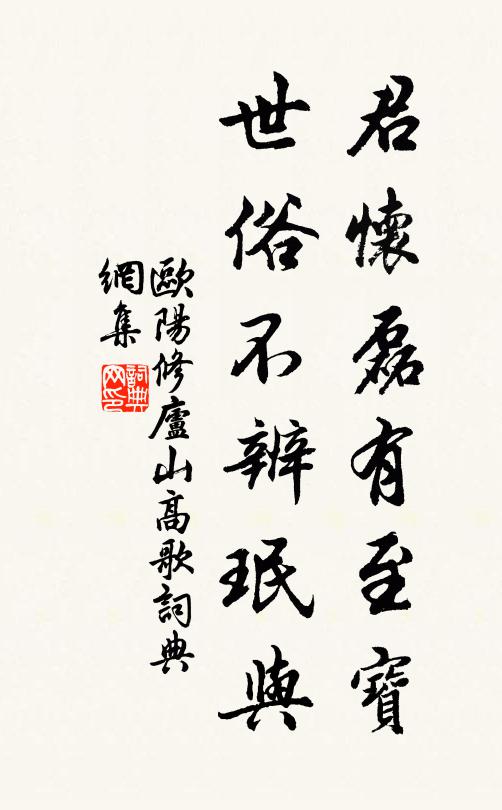 君懷磊有至寶
世俗不辨珉與
歐陽修廬山高歌詞典
網集
詞典
网印